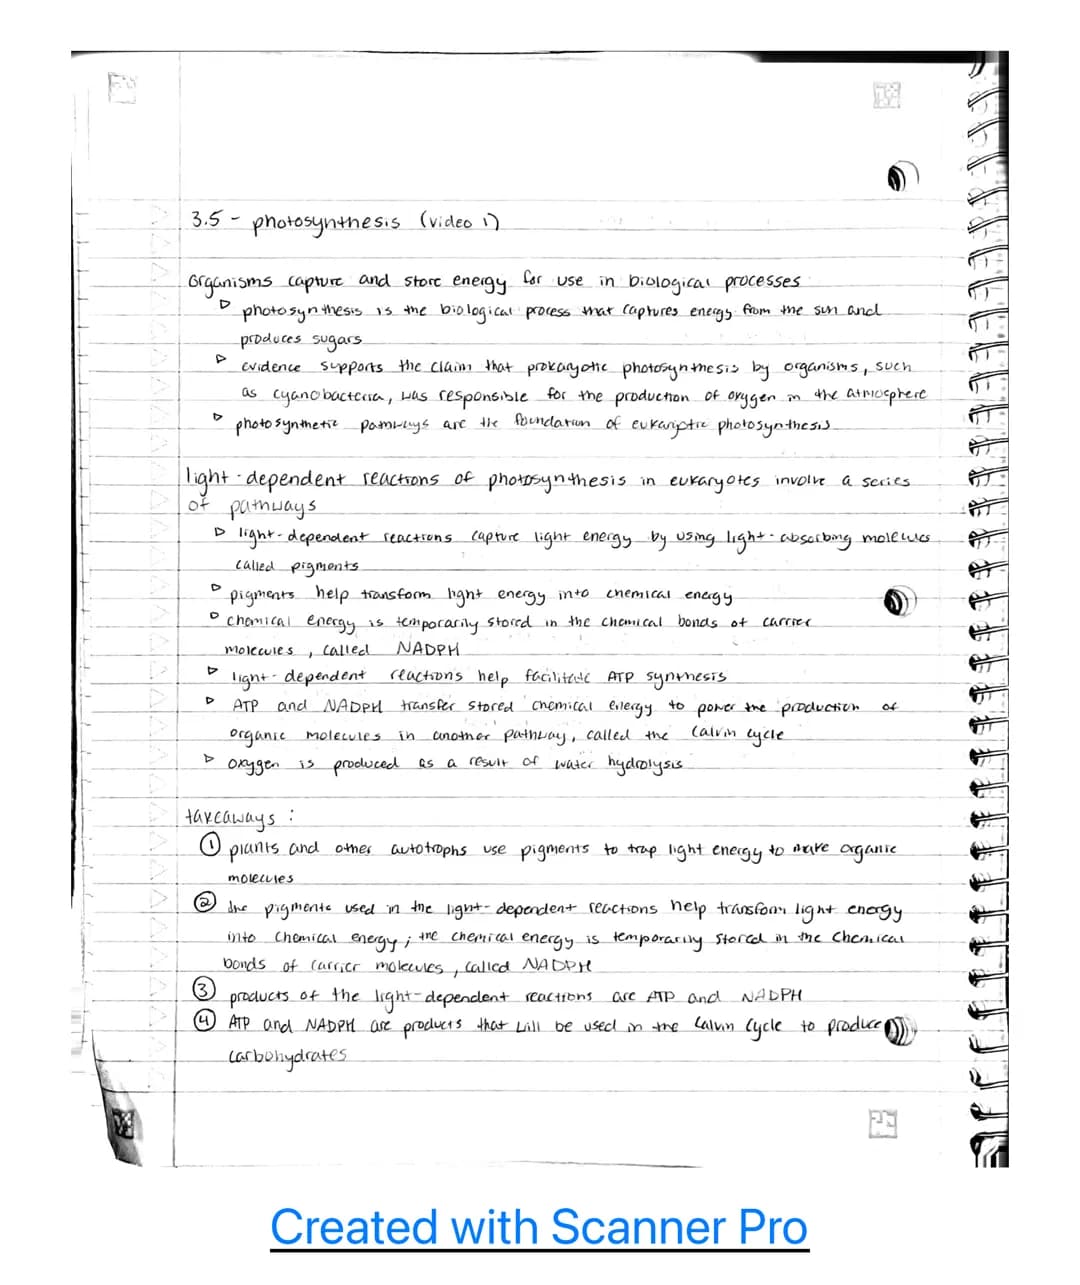 3.5 - photosynthesis (video 1)
organisms capture and store energy for use in biological processes
▷ photosynthesis is the biological process that captures energy from the sun and
produces sugars
▷ evidence supports the claim that prokaryotic photosynthesis by organisms, such
as cyanobacteria, was responsible for the production of oxygen in the atmosphere
▷ photosynthetic pathways are the foundation of eukaryotic photosynthesis
light-dependent reactions of photosynthesis in eukaryotes involve a series
of pathways
▷ light-dependent reactions capture light energy by using light-absorbing molecules
called pigments
▷ pigments help transform light energy into chemical energy
▷ chemical energy is temporarily stored in the chemical bonds of carrier
molecules, called NADPH
▷ light-dependent reactions help facilitate ATP synthesis
▷ ATP and NADPH transfer stored chemical energy to power the production of
organic molecules in another pathway, called the Calvin Cycle
▷ oxygen is produced as a result of water hydrolysis
takeaways:
① plants and other autotrophs use pigments to trap light energy to make organic
molecules
② the pigments used in the light-dependent reactions help transform light energy
into chemical energy; the chemical energy is temporarily stored in the chemical
bonds of carrier molecules, called NADPH
③ products of the light-dependent reactions are ATP and NADPH
④ ATP and NADPH are products that will be used in the Calvin Cycle to produce
carbohydrates
Created with Scanner Pro